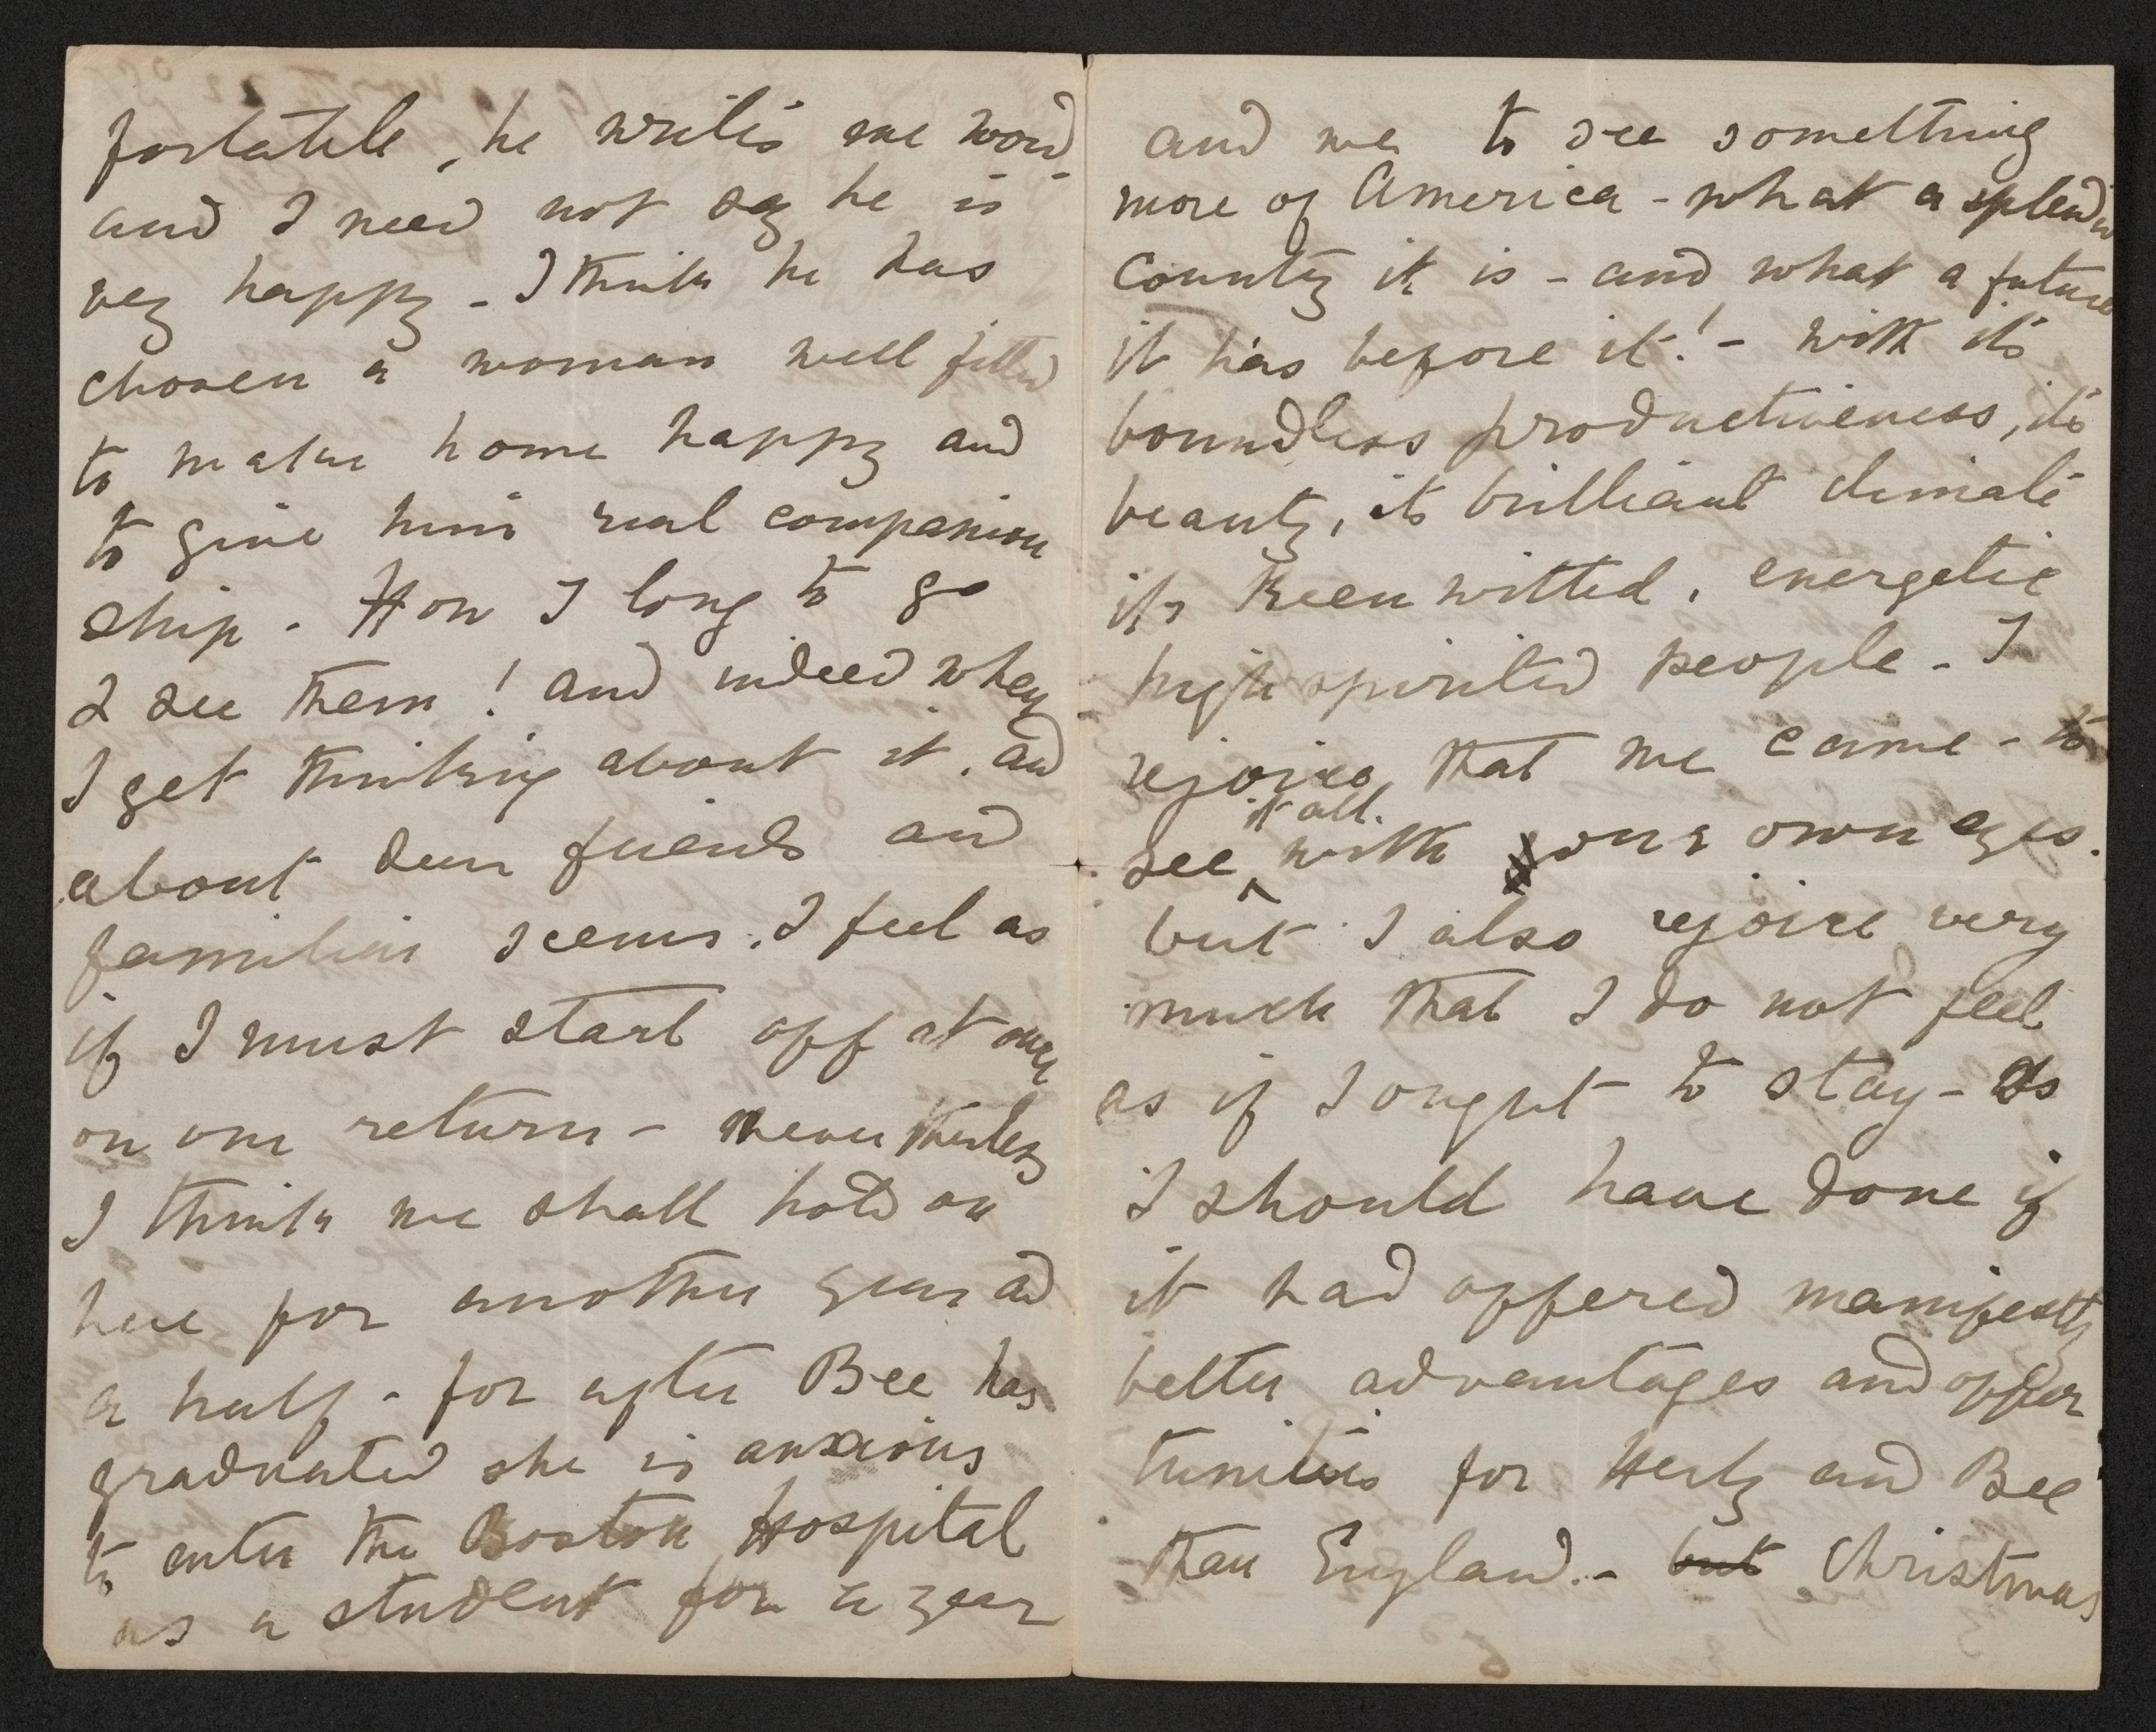 fortable, he writes me word
and I need not say he is
very happy - I think he has
chosen a woman well fitted
to make home happy and
to give him real companion
ship - How I long to go
& see them! and indeed when
I get thinking about it, and
about dear friends and
familiar scenes, I feel as
if I must start off at once
on our return - nevertheless
I think we shall hold on
here for another year and
a half - for after Bee has
graduated she is anxious
to enter the Boston Hospital
as a student for a year
and we to see something
more of America - what a splendid
Country it is - and what a future
it has before it! - with its
boundless productiveness, its
beauty, its brilliant climate
its keen witted, energetic
high spirited people - I
rejoice that we came - to
see it all with our own eyes.
but I also rejoice very
much that I do not feel
as if I ought to stay - as
I should have done if
it had offered manifestly
better advantages and oppor
tunities for Herby and Bee
than England. - but Christmas